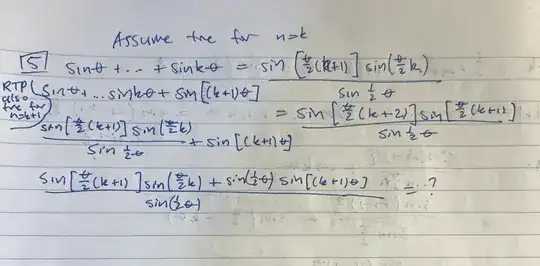 Assume true for n=k
5 sinθ + .. + sinkθ = sin [θ/2(k+1)] sin(θ/2 k) / sin ½ θ
RTP also true for n=k+1 ( sinθ + ... sinkθ + sin[(k+1)θ]
= sin[θ/2(k+2)] sin[θ/2(k+1)] / sin ½ θ
sin[θ/2(k+1)] sin(θ/2 k) / sin ½ θ + sin[(k+1)θ]
sin[θ/2(k+1)] sin(θ/2 k) + sin(½θ) sin[(k+1)θ] / sin(½θ) = ..?